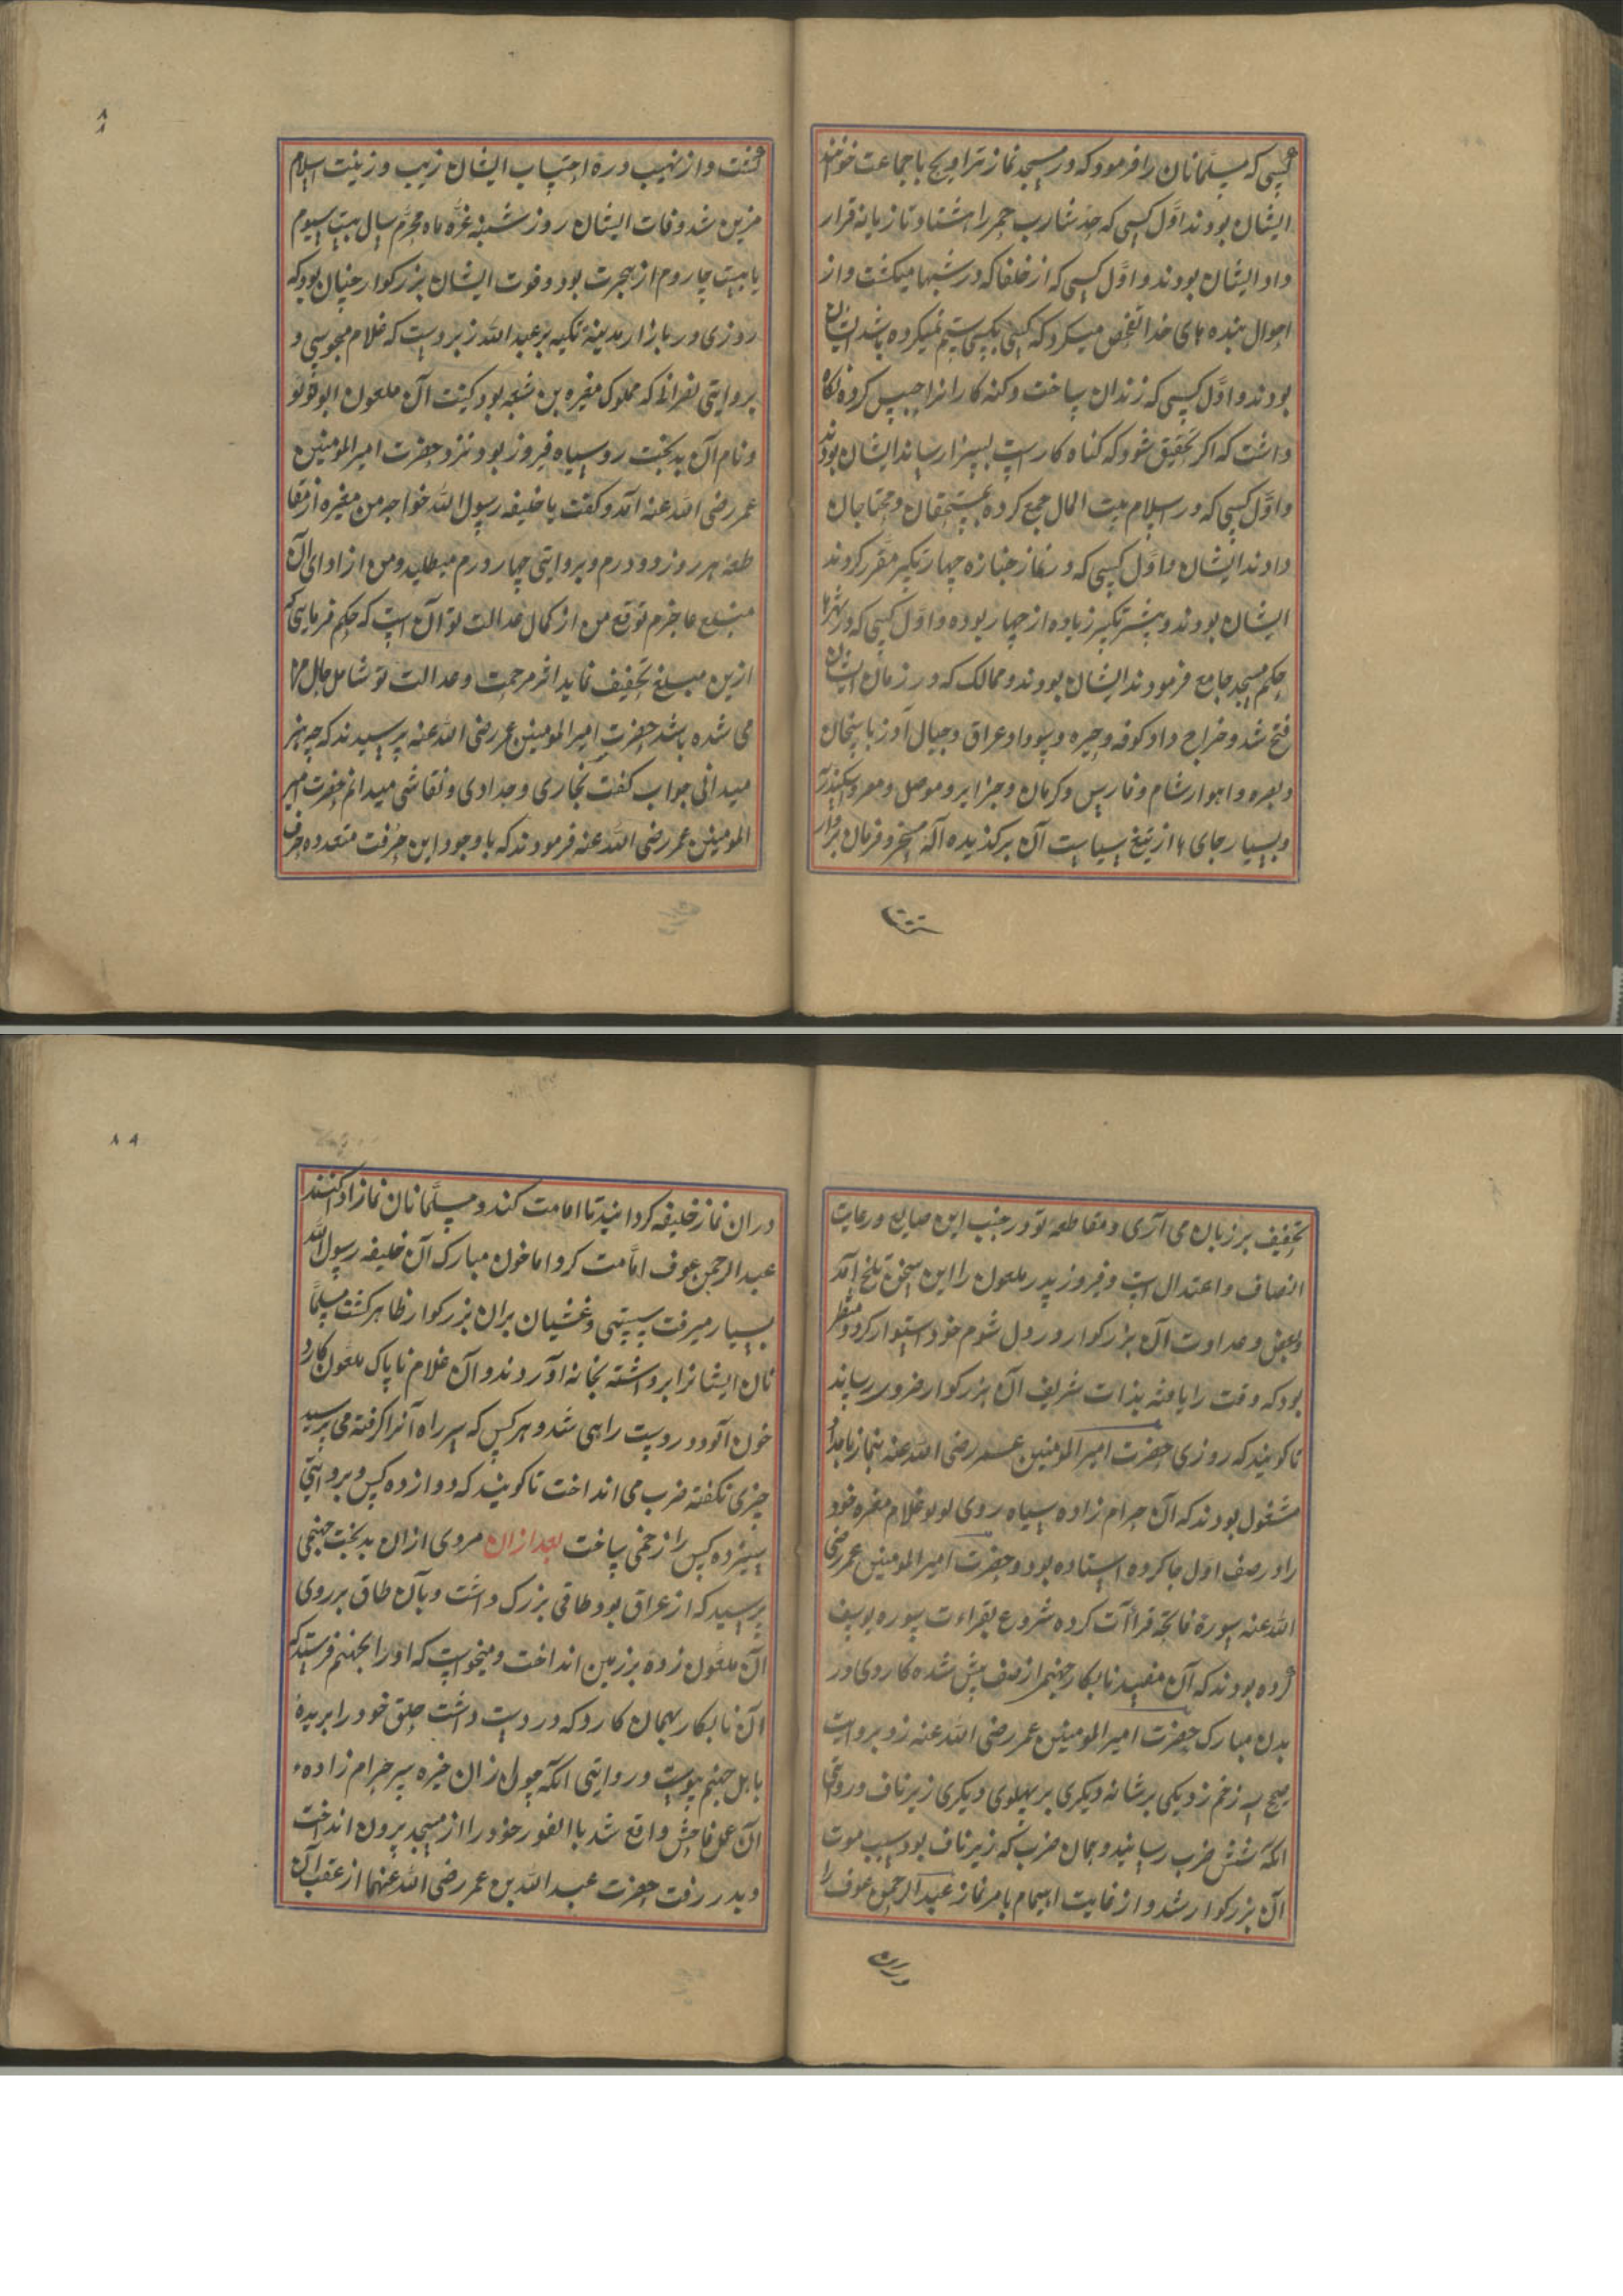 کسی که مسلمانان را فرمود که در مسجد نماز تراویح با جماعت خوانند
ایشان بودند اوّل کسی که حدّ شارب خمر را هشتاد تازیانه قرار
داد ایشان بودند و اوّل کسی که از خلفا که در شبها میکشت و از
احوال بنده های خدا تفحص میکرد که کسی بکسی ستم نمیکرده باشد ایشان
بودند و اوّل کسی که زندان ساخت و کنه کارانرا حبس کرده نکاه
داشت که اکر تحقیق شود که کناه کار است بسزا رساند ایشان بودند
و اوّل کسی که در اسلام بیت المال جمع کرده بمستحقان و محتاجان
دادند ایشان و اوّل کسی که در نماز جنازه چهار تکبیر مقرر کردند
ایشان بودند و پیشتر تکبیر زیاده از چهار بوده و اوّل کسی که در شهرها
حکم مسجد جامع فرمودند ایشان بودند و ممالک که در زمان ایشان
فتح شد و خراج داد کوفه و حیره و سواد و عراق و جبال آوزبایجان
و بصره و اهواز شام و فارس و کرمان و جزایر و موصل و مصر و اسکندریه
و بسیار جای ها از تیغ سیاست آن برکزیده آله مسخر و فرمان بردار
کشت
کشت و از نهیب دره احتساب ایشان زیب و زینت اسلام
مزین شد وفات ایشان روز شنبه غرّه ماه محرّم سال بیت سیوم
یا بیت چاروم از هجرت بود و فوت ایشان بزرکوار چنان بود که
روزی در بازار مدینة تکیه بر عبد الله زبر دست که غلام مجوسی و
بروایتی نصرانی که مملوک مغیره بن شعبه بود کنیت آن ملعون ابو لولو
و نام آن بدبخت روسیاه فیروز بود نزد حضرت امیر المومنین
عمر رضی الله عنه آمد و کفت یا خلیفه رسول الله خواجه من مغیره از مقا
طعه هر روز دو درم و بروایتی چهار درم میطلبد و من از ادای آن
مبلغ عاجزم توقع من از کمال عدالت تو آن است که حکم فرمایی که
ازین مبلغ تخفیف نماید اثر مرحمت و عدالت تو شامل حال ما
می شده باشد حضرت امیر المومنین عمر رضی الله عنه پرسیدند که چه هنر
میدانی جواب کفت نجاری و حدادی و نقاشی میدانم حضرت امیر
المومنین عمر رضی الله عنه فرمودند که با وجود این حرفت متعدده حرف
۸۸
تخفیف بر زبان می آری و مقاطعه تو در جنب این صنایع و رعایت
انصاف و اعتدال است و فیروز پدر ملعون را این سخن تلخ آمد
و بغض و عداوت آن بزرکوار در دل شوم خود استوار کرد و منتظر
بود که وقت را یافته بذات شریف آن بزرکوار ضرر رساند
تا کویند که روزی حضرت امیر المومنین عمر رضی الله عنه بنماز بامداد
مشغول بودند که آن حرام زاده سیاه روی لولو غلام مغیره خود
را در صف اوّل جا کرده استاده بود و حضرت امیر المومنین عمر رضی
الله عنه سورة فاتحة قراآت کرده شروع بقراءت سوره یوسف
کرده بودند که آن مفسد نابکار جهنم از صف پیش شده کاردی در
بدن مبارک حضرت امیر المومنین عمر رضی الله عنه زد بروایت
صحیح سه زخم زد یکی بر شانه و یکری بر پهلوی و یکری زیر ناف و روایتی
انکه شش ضرب رسانید و همان ضرب که زیر ناف بود سبب موت
آن بزرکوار شد و از غایت اهتمام بامر نماز عبد الرحمن عوف را
دران
دران نماز خلیفه کردانید تا امامت کند و مسلمانان نماز ادا کنند
عبد الرحمن عوف امّامت کرد اما خون مبارک آن خلیفه رسول الله
بسیار میرفت سستی و غشیان بران بزرکوار ظاهر کشت مسلما
نان ایشانرا برداشته بخانه آوردند و آن غلام ناپاک ملعون کارد
خون آلود در دست راهی شد و هر کس که سر راه آنرا کرفته می پرسید
چیزی نکفته ضرب می انداخت تا کویند که دوازده کس و بروایتی
سیزده کس را زخمی ساخت بعد ازان مردی ازان بدبخت جهنمی
پرسید که از عراق بود طاقی بزرک داشت و بآن طاق بر روی
آن ملعون زده بر زمین انداخت و میخواست که اورا بجهنم فرستد که
آن نابکار بهمان کارد که در دست داشت حلق خود را بریده
با هل جهنم پیوست و روایتی انکه چون زان خیره سر حرام زاده
آن عمل فاحش واقع شد با الفور خود را از مسجد بیرون انداخت
و بدر رفت حضرت عبد الله بن عمر رضی الله عنهما از عقب آن